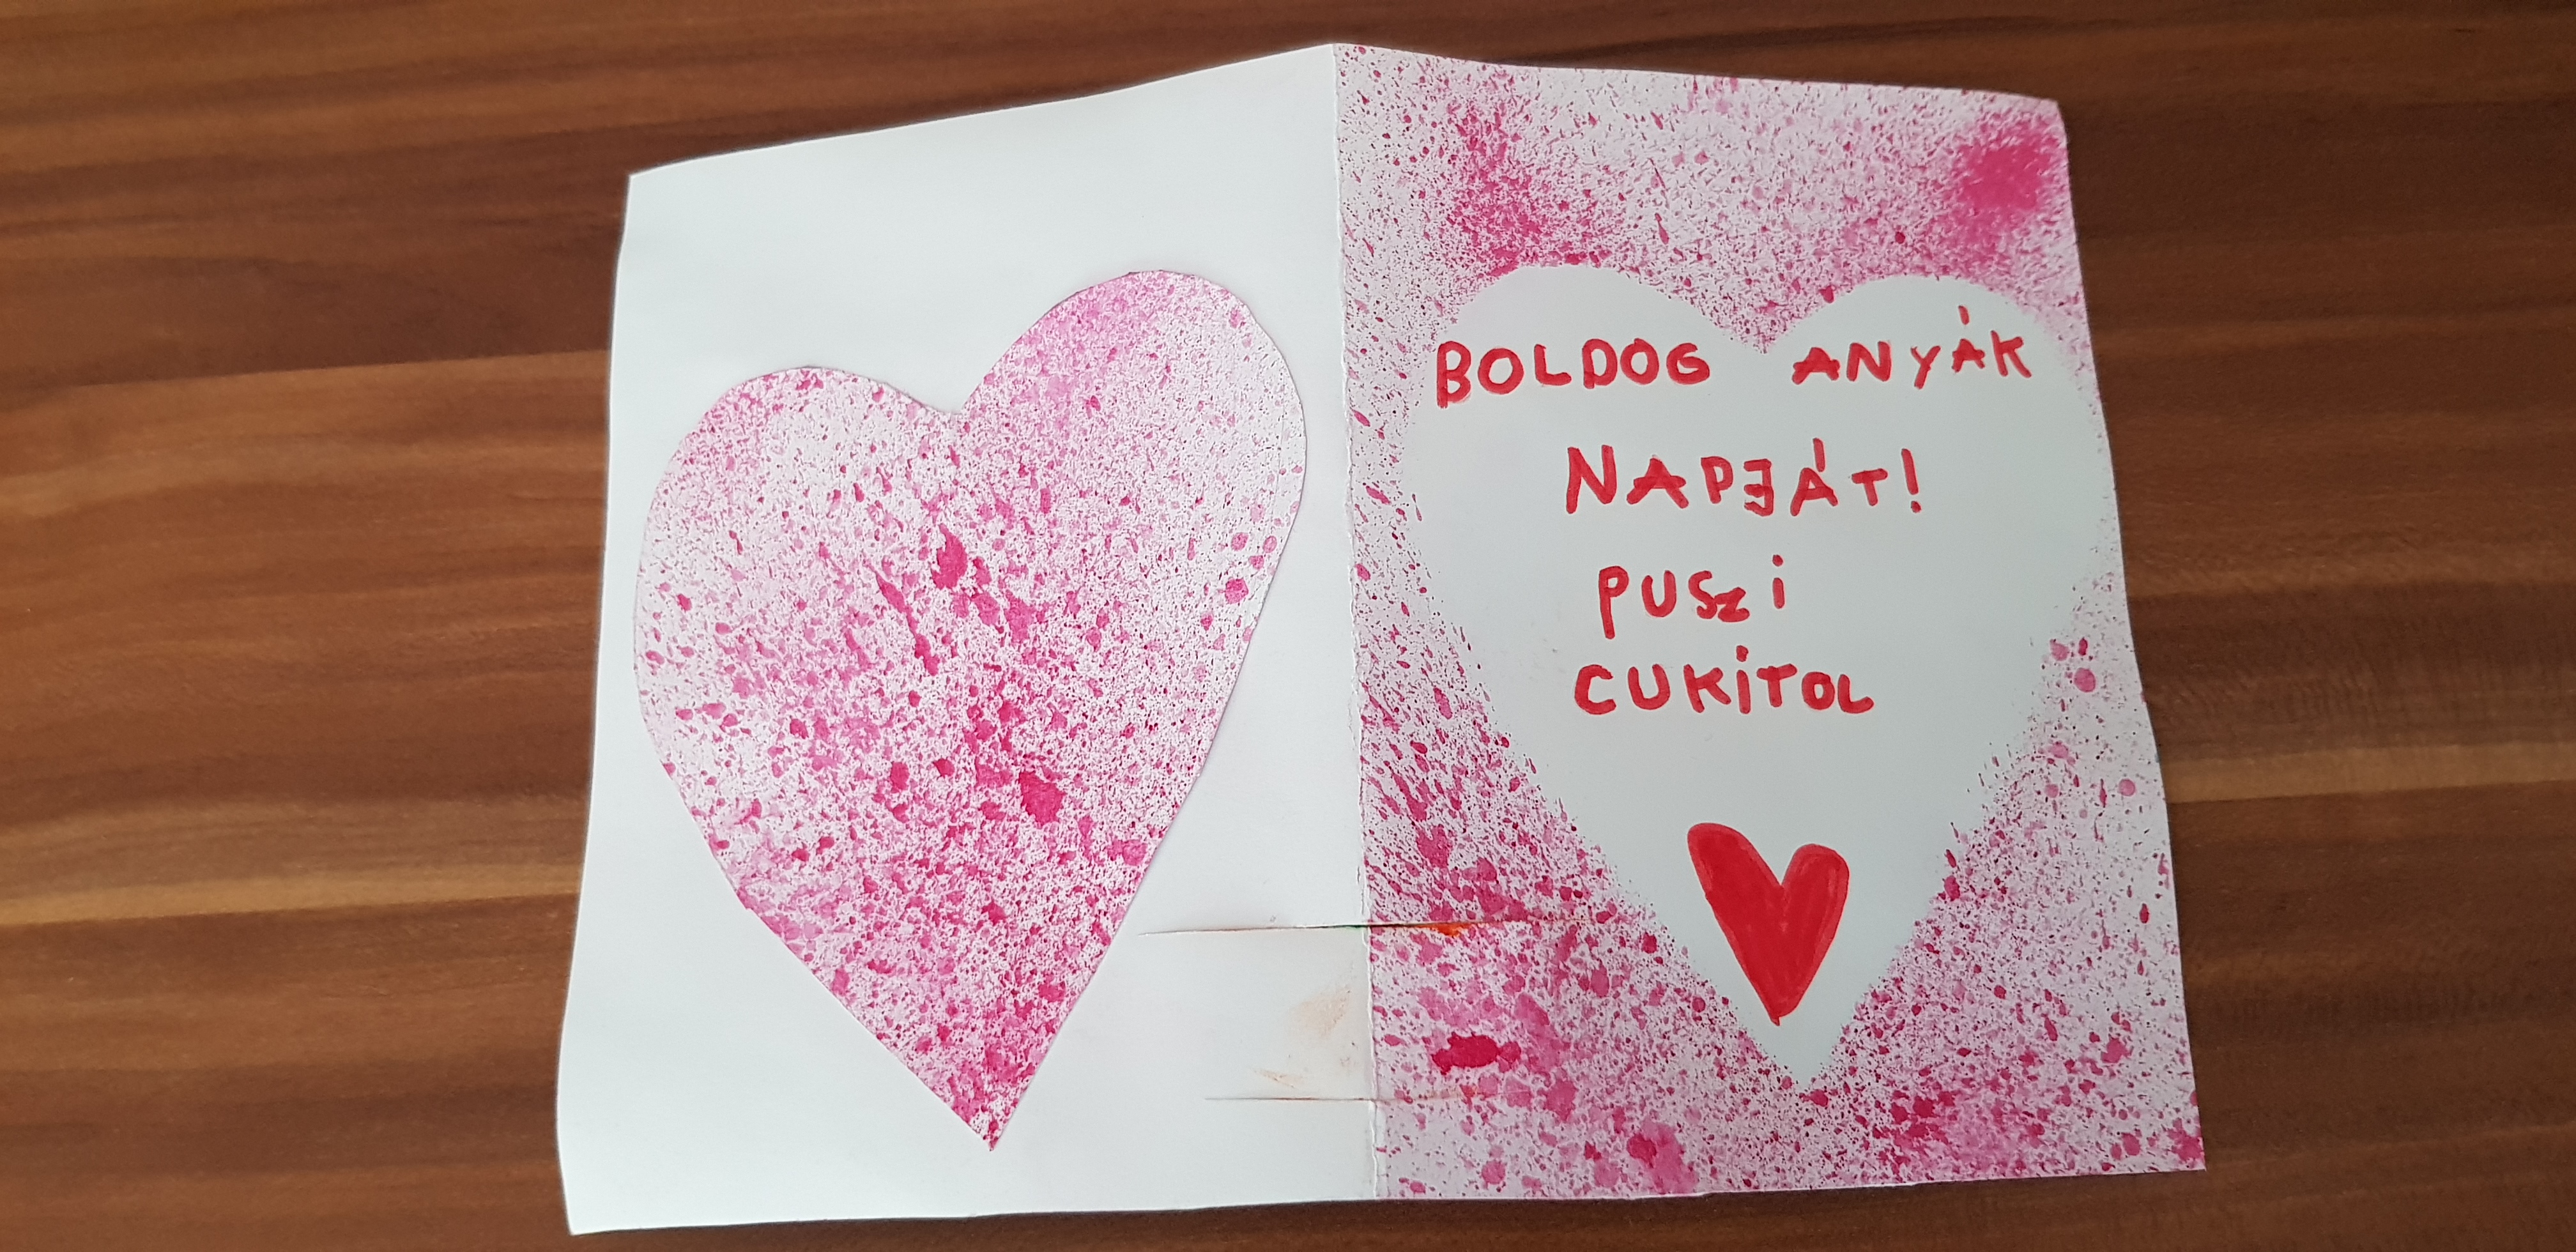 BOLDOG ANYÁK
NAPJÁT!
PUSZI
CUKÍTOL